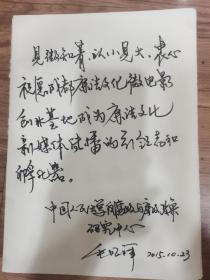 见微知著，以小见大，衷心
祝愿成都廉洁文化微电影
创业基地成为廉洁文化
新媒体传播的引领者和
孵化器。
中国人民大学反腐败与廉政政策
研究中心
2015.10.23